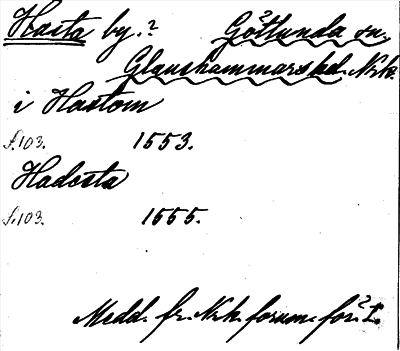 Hasta by.? Götlunda sn.
Glanshammars hd. Nrk.
i Hastom
f. 103. 1553.
Hadesta
f. 103. 1555.
Medd. fr. Nrk. fornm. för. I.